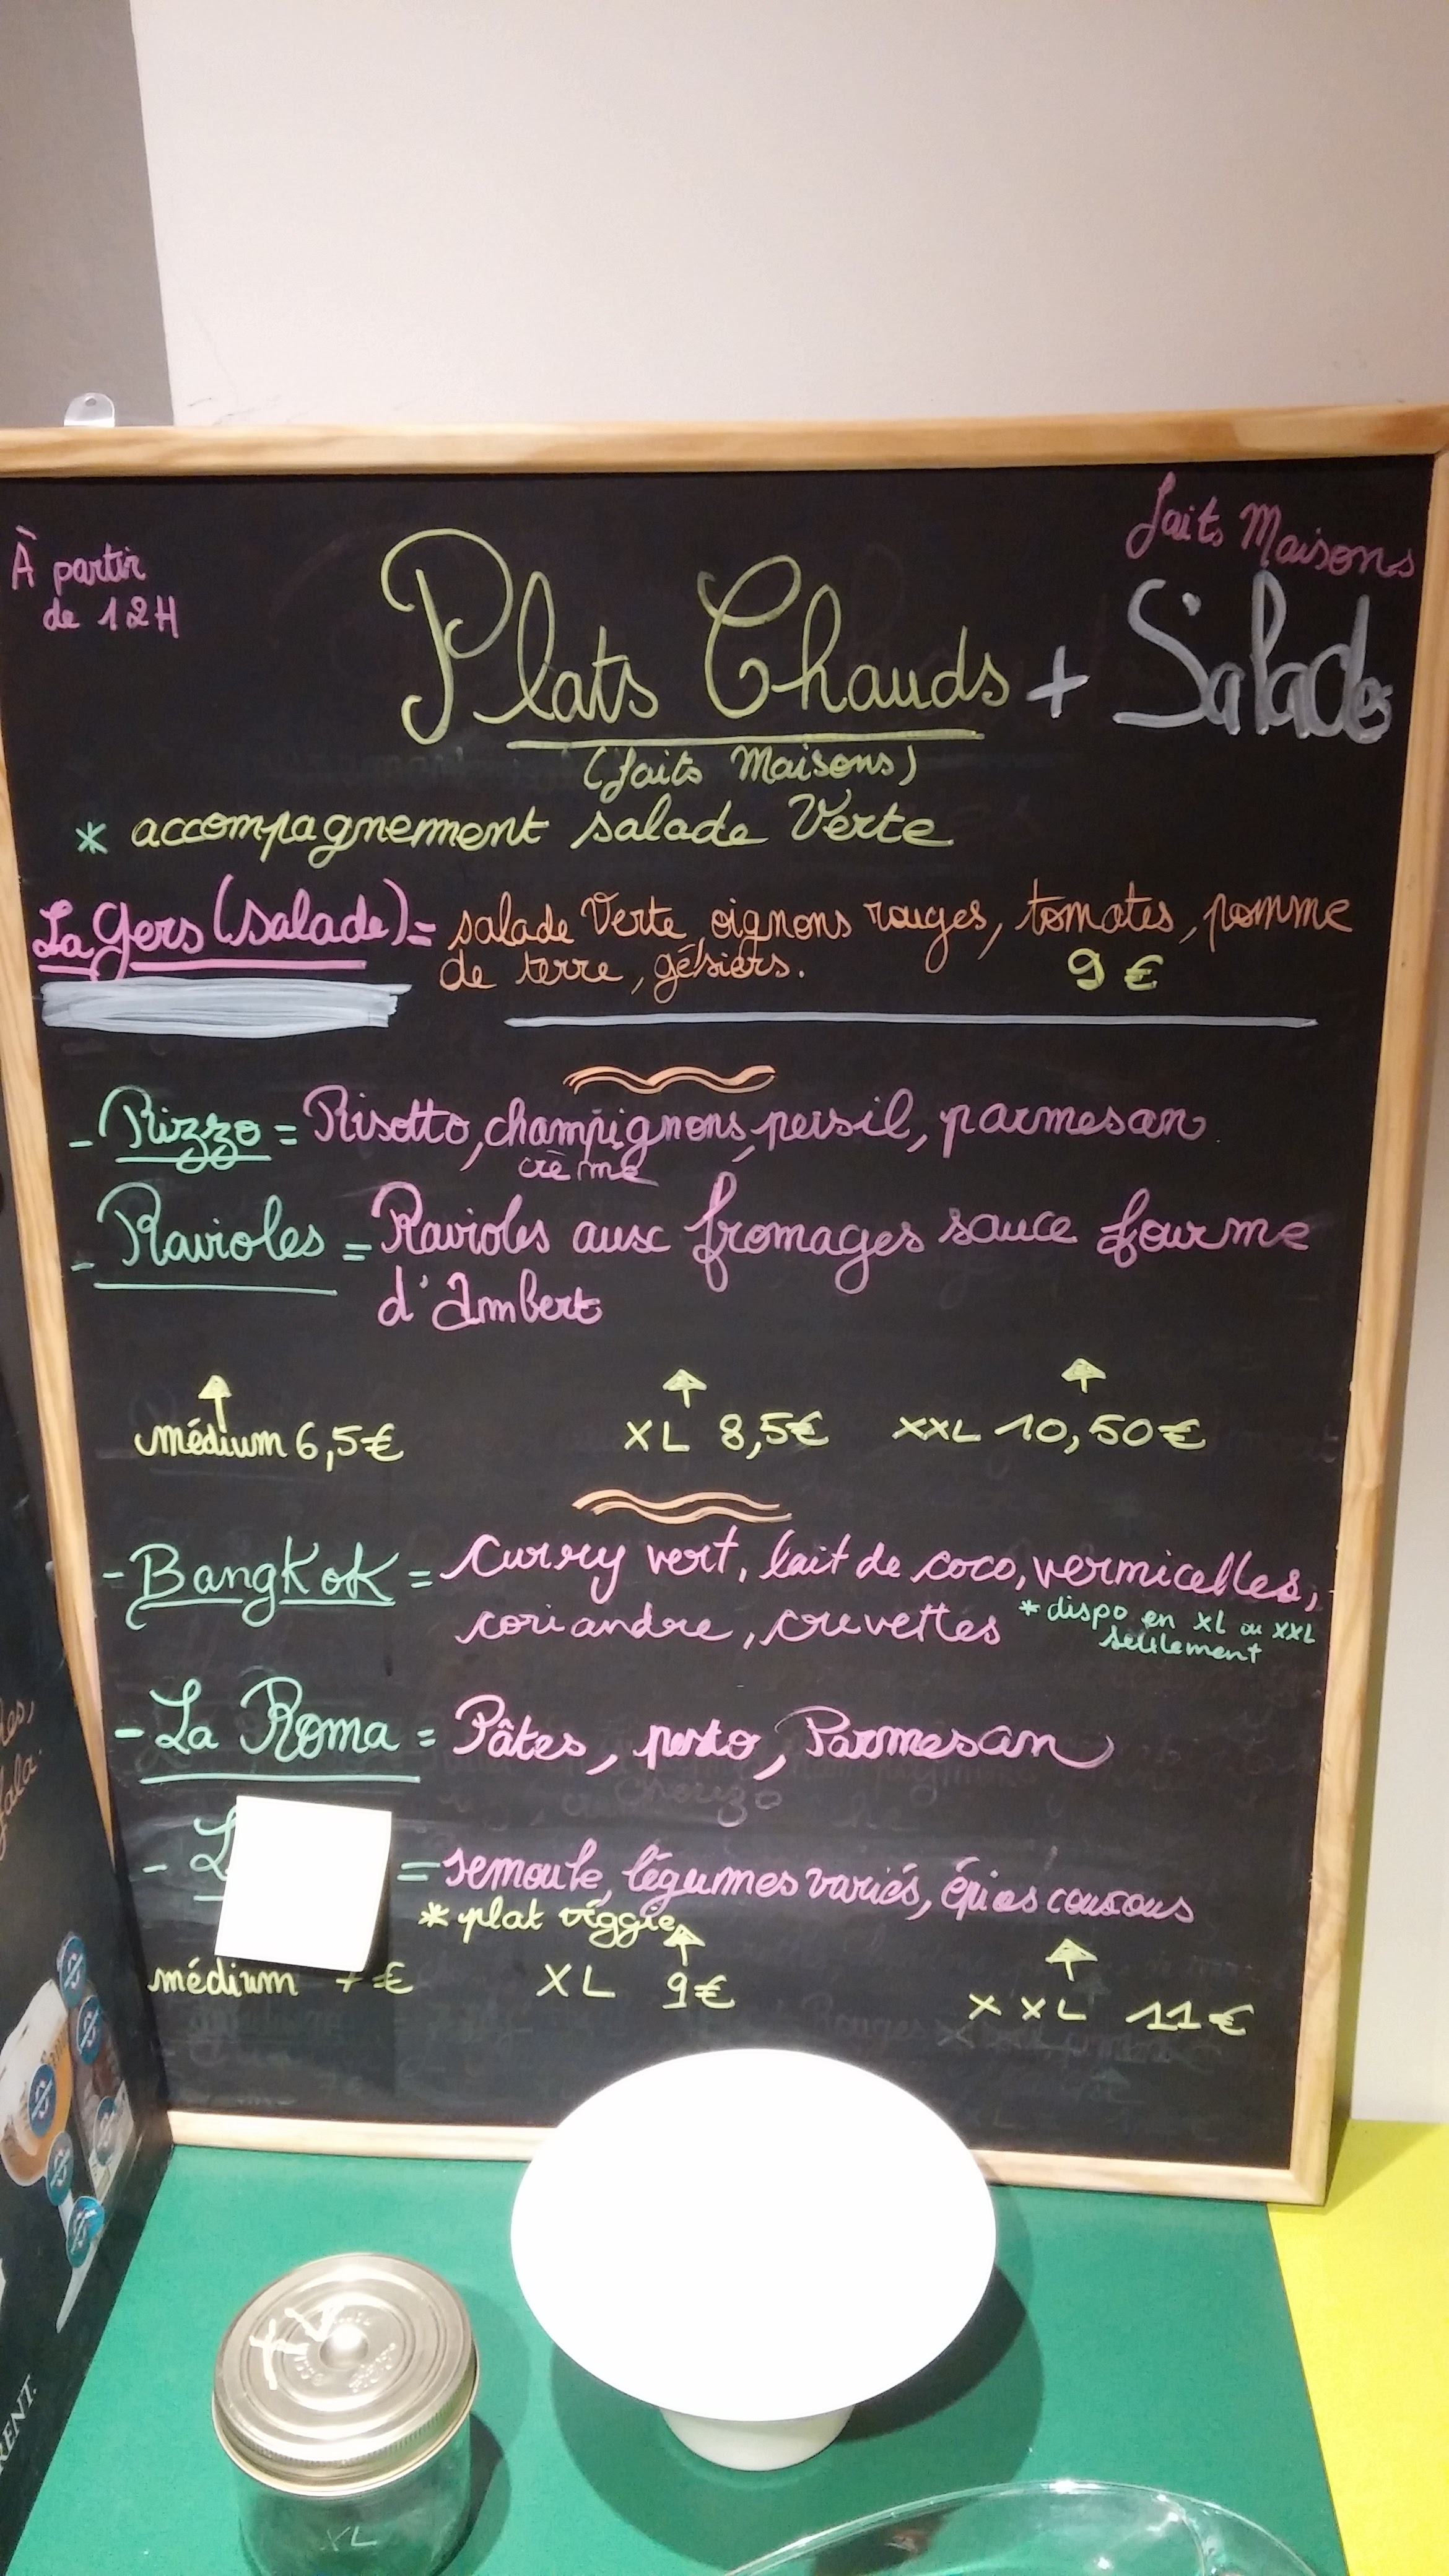 À partir
de 12H
faits Maisons
Plats Chauds + Salades
(faits Maisons)
* accompagnement salade Verte
La Gers (salade) = salade Verte oignons rouges, tomates, pomme
de terre, gésiers. 9 €
- Rizzo = Risotto, champignons, persil, parmesan
crème
- Ravioles = Ravioles aux fromages sauce fourme
d'Ambert
médium 6,5€ XL 8,5€ XXL 10,50€
- Bangkok = Curry vert, lait de coco, vermicelles,
coriandre, crevettes * dispo en XL ou XXL
seulement
- La Roma = Pâtes, pesto, Parmesan
Chorizo
- = semoule, légumes variés, épices couscous
* plat véggie
médium 7€ XL 9€ XXL 11€
XL
XL
RENT.